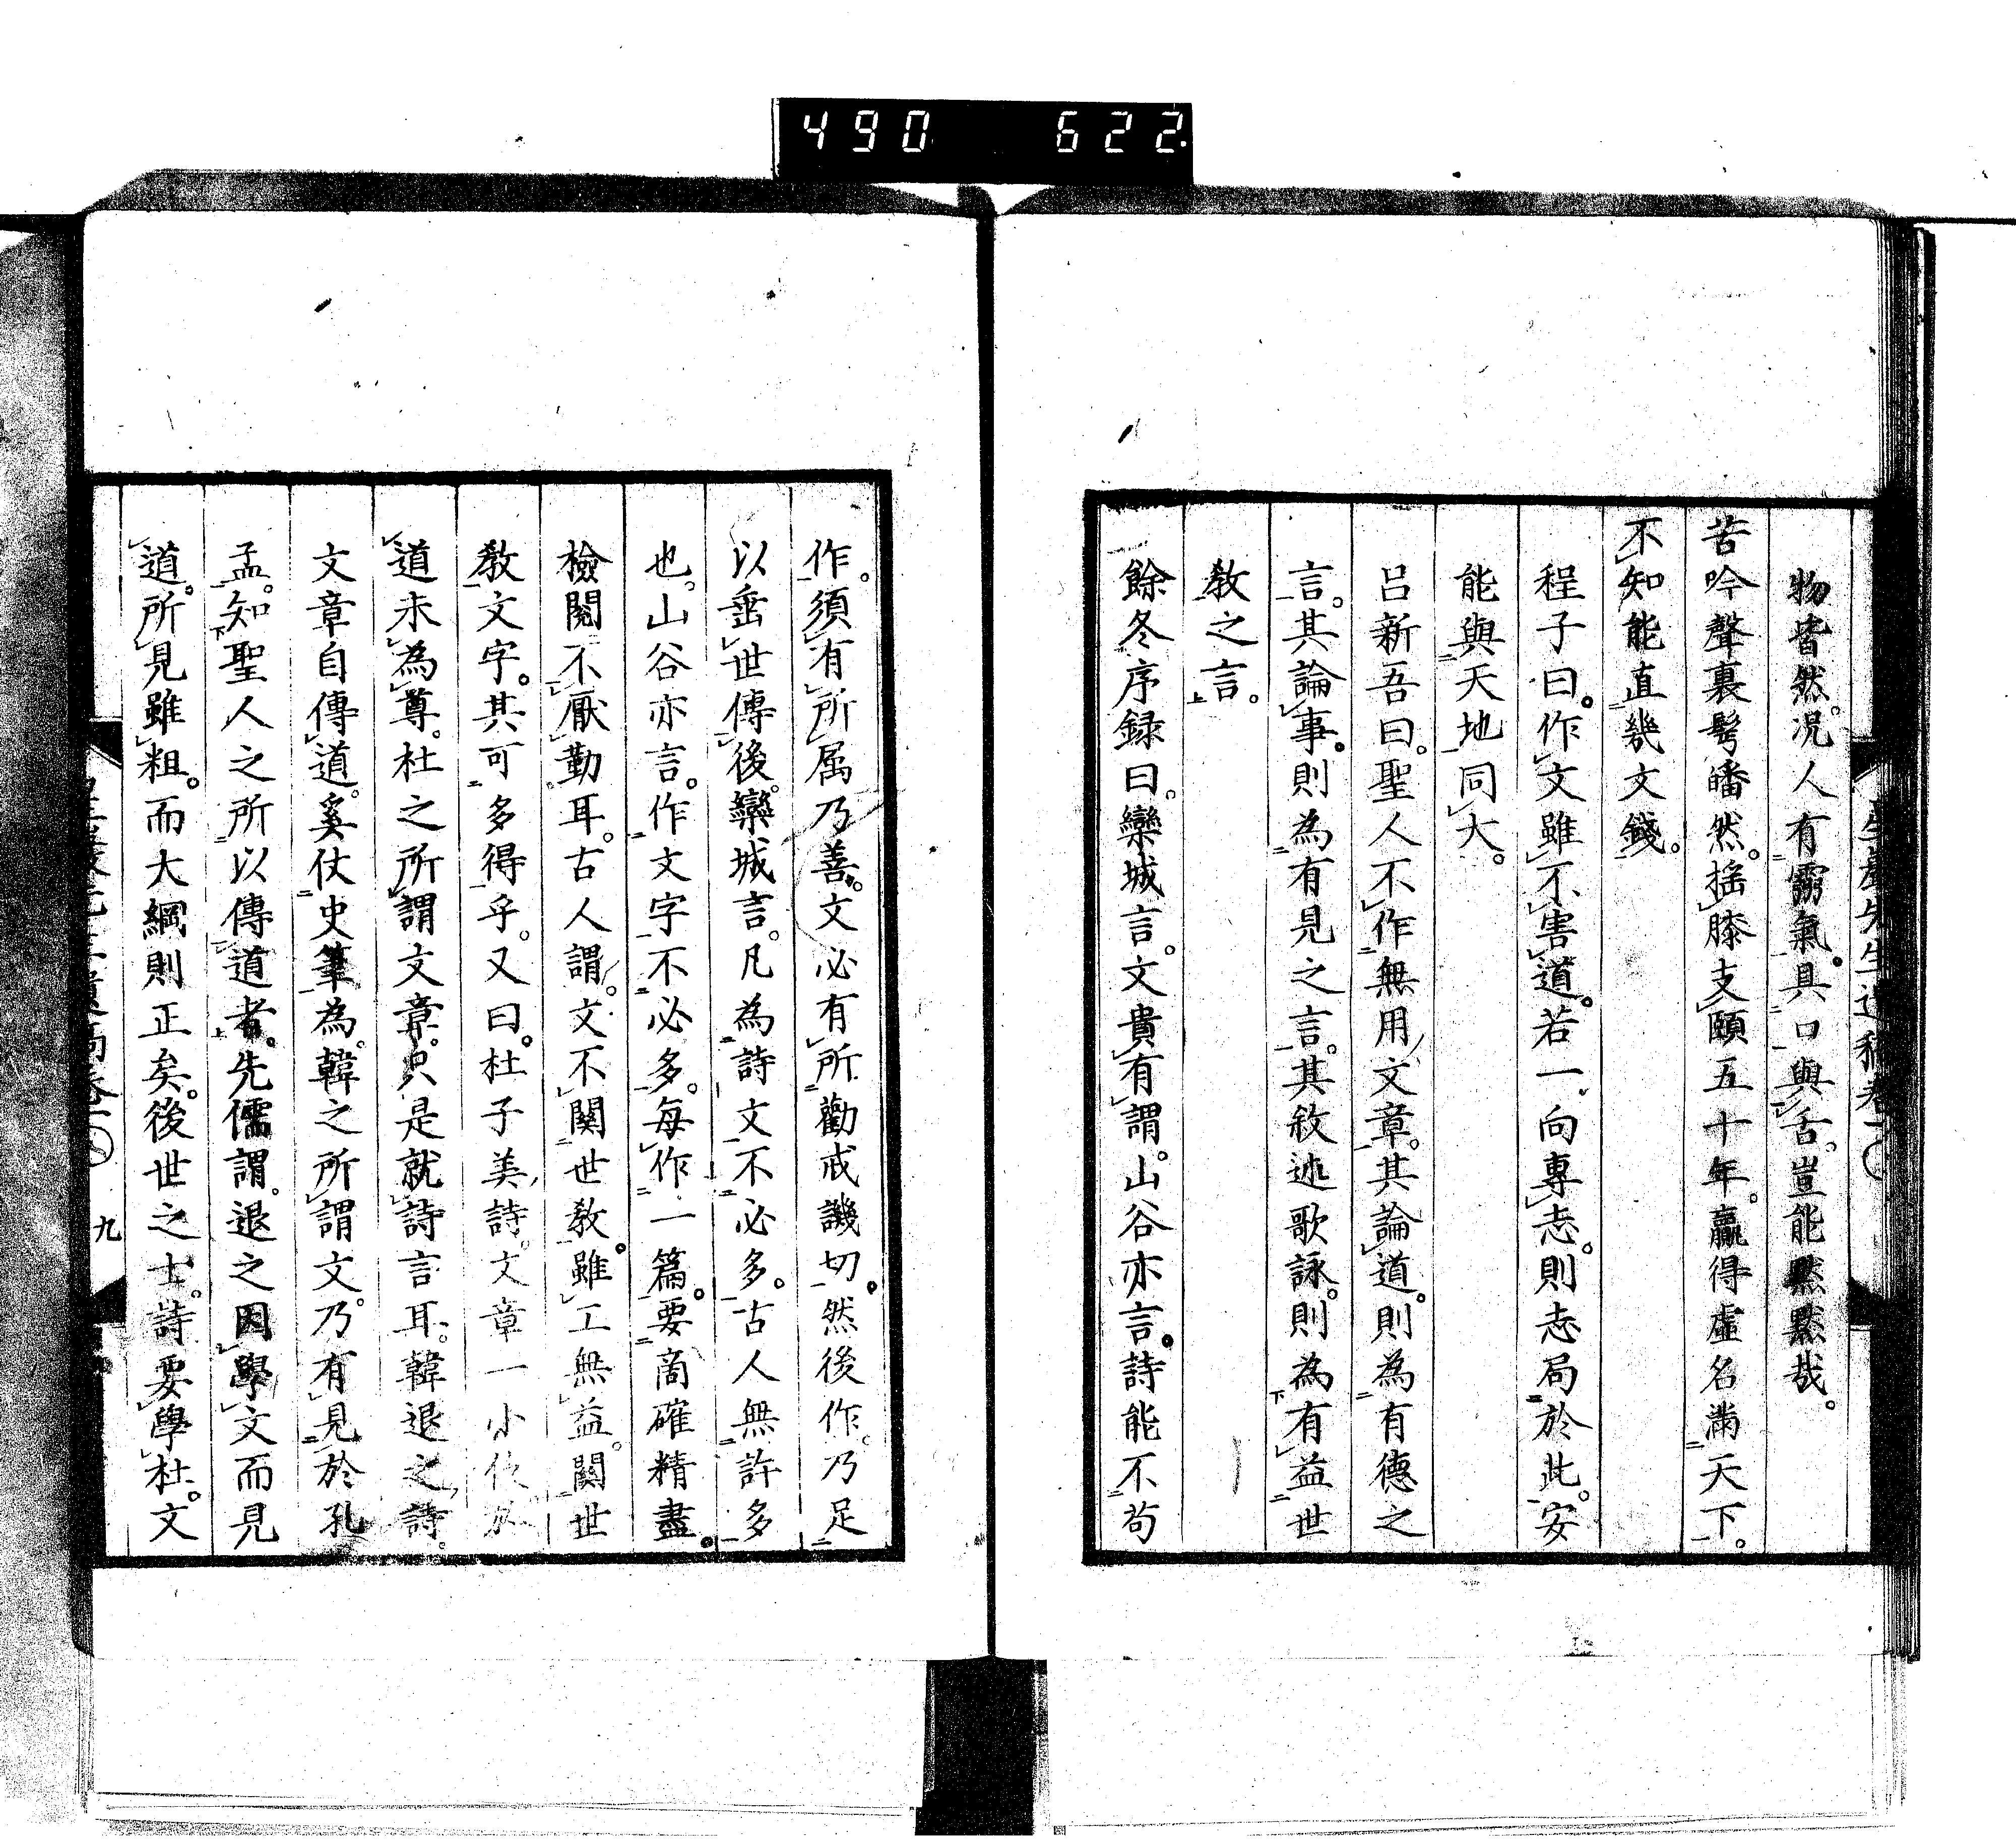 490 622
物皆然。况人有霛氣。具口與舌。豈能黙黙哉。
苦吟聲裏髩皤然。揺膝支頤五十年。贏得虛名滿天下。
不知能直幾文錢。
程子曰。作文雖不害道。若一向專志。則志局於此。安
能與天地同大。
呂新吾曰。聖人不作無用文章。其論道。則為有德之
言。其論事。則為有見之言。其敘述歌詠。則為有益世
教之言。
餘冬序録曰。欒城言。文貴有謂。山谷亦言。詩能不苟
作。須有所属乃善。文必有所勸戒譏切。然後作。乃足
以垂世傳後。欒城言。凡為詩文不必多。古人無許多
也。山谷亦言。作文字不必多。每作一篇。要商確精盡。
檢閱不厭勤耳。古人謂。文不關世教。雖工無益。關世
教文字。其可多得乎。又曰。杜子美詩。文章一小伎於
道未為尊。杜之所謂文章。只是就詩言耳。韓退之詩。
文章自傳道。奚仗史筆為。韓之所謂文。乃有見於孔
孟。知聖人之所以傳道者。先儒謂。退之因學文而見
道。所見雖粗。而大綱則正矣。後世之士。詩要學杜。文
九